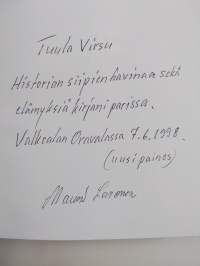 Tuula Virsu
Historian siipien havinaa sekä
elämyksiä kirjani parissa.
Valkealan Oravalassa 7.6.1998.
(uusi painos)